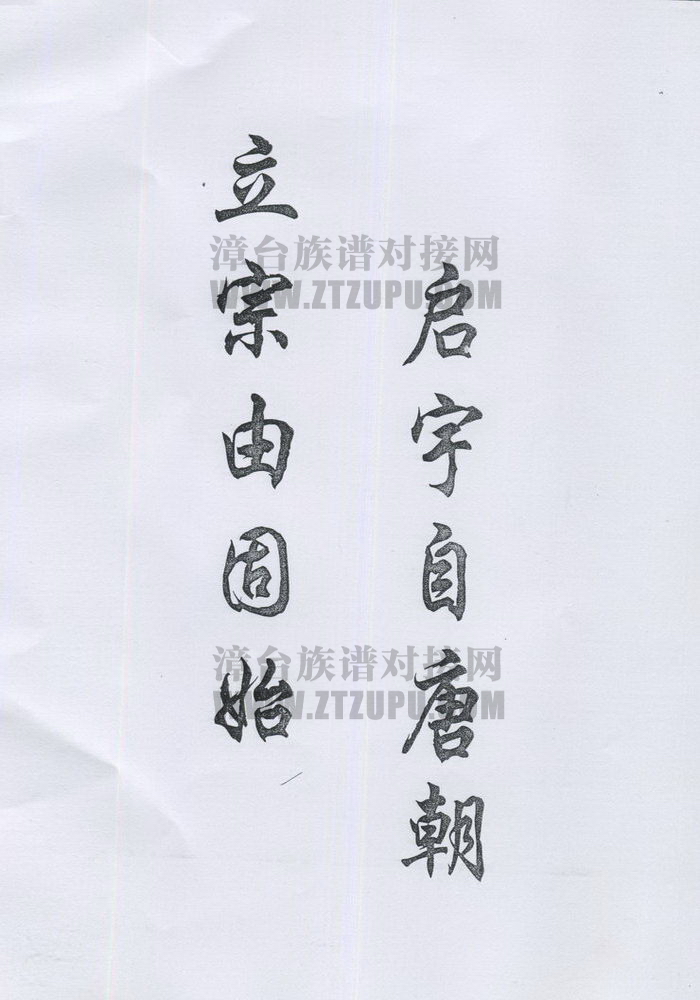 启宇自唐朝
立宗由固始
漳台族谱对接网
WWW.ZTZUPU.COM
漳台族谱对接网
WWW.ZTZUPU.COM